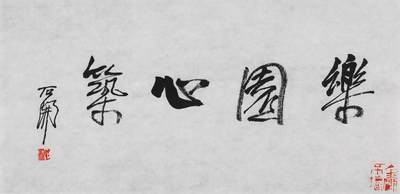 樂園心築
石開